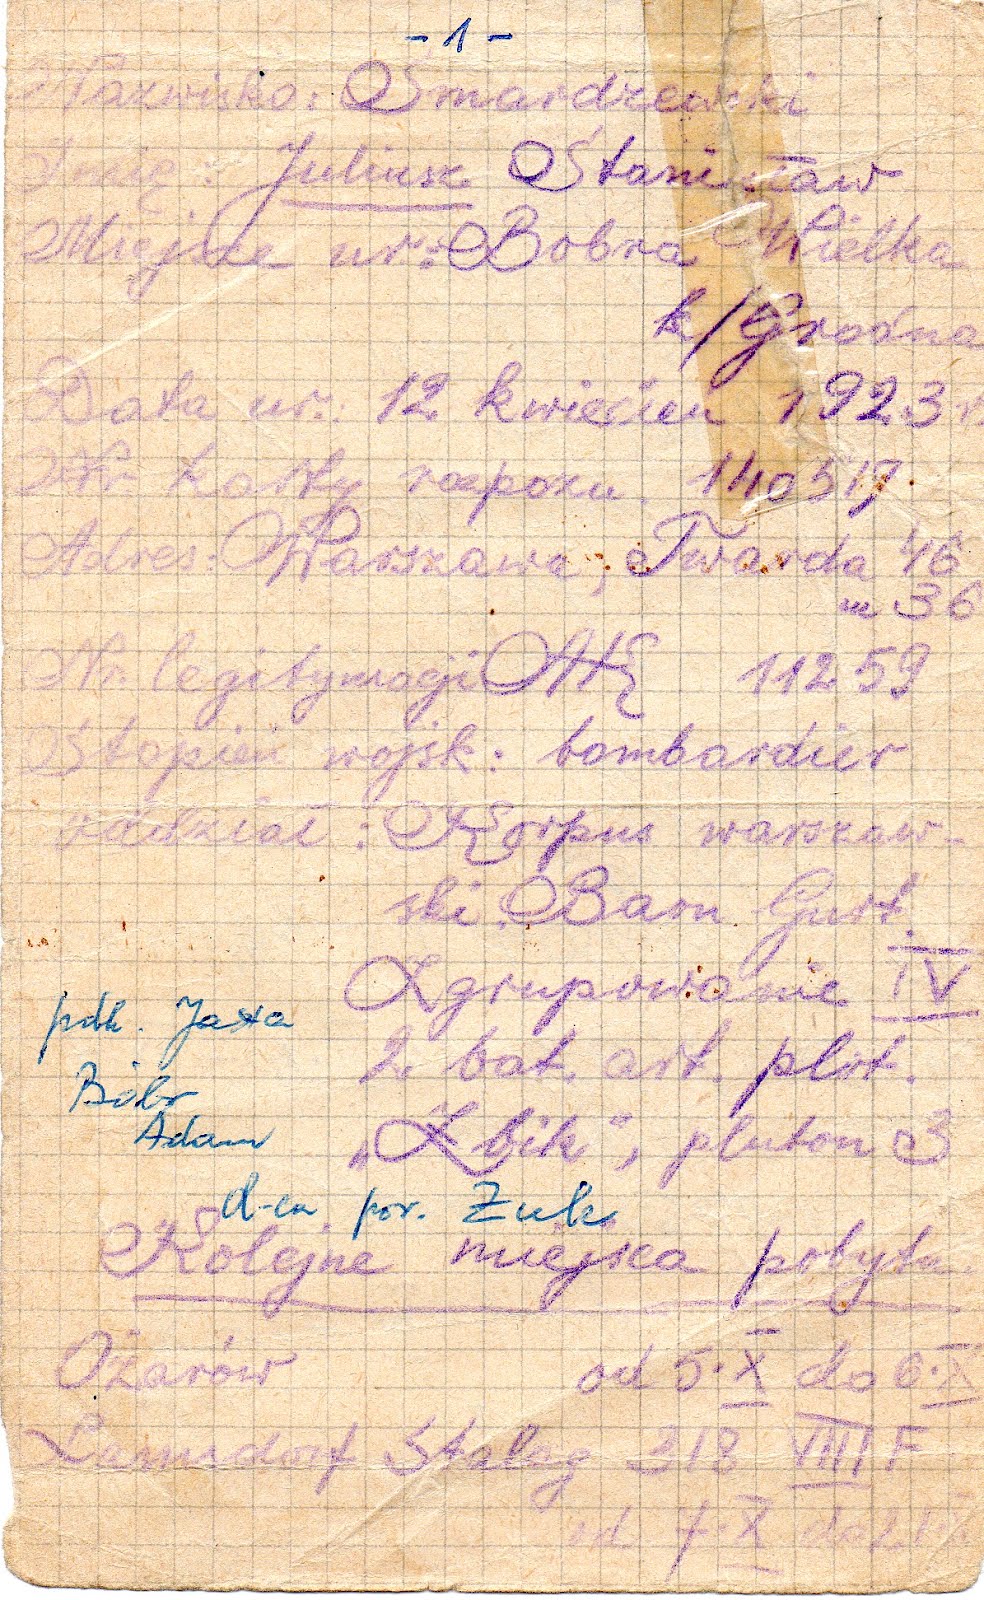 - 1 -
Nazwisko: Smardzewski
Imię: Juliusz Stanisław
Miejsce ur.: Bobra Wielka
k/Grodna
Data ur.: 12 kwiecień 1923 r.
Nr karty rozpozn. 140517
Adres: Warszawa, Twarda 46
m 36
Nr legitymacji AK 11259
Stopień wojsk: bombardier
oddział: Korpus warszaw-
ski. Baon Gurt.
Zgrupowanie IV
pdh. Jaxa
2 bat. art. plot.
Bóbr
Adam
„Zbik”, pluton 3
d-ca por. Żuk
Kolejne miejsca pobytu.
Ożarów od 5.X do 6.X
Lamsdorf Stalag 318 VIII F
od 7.X do